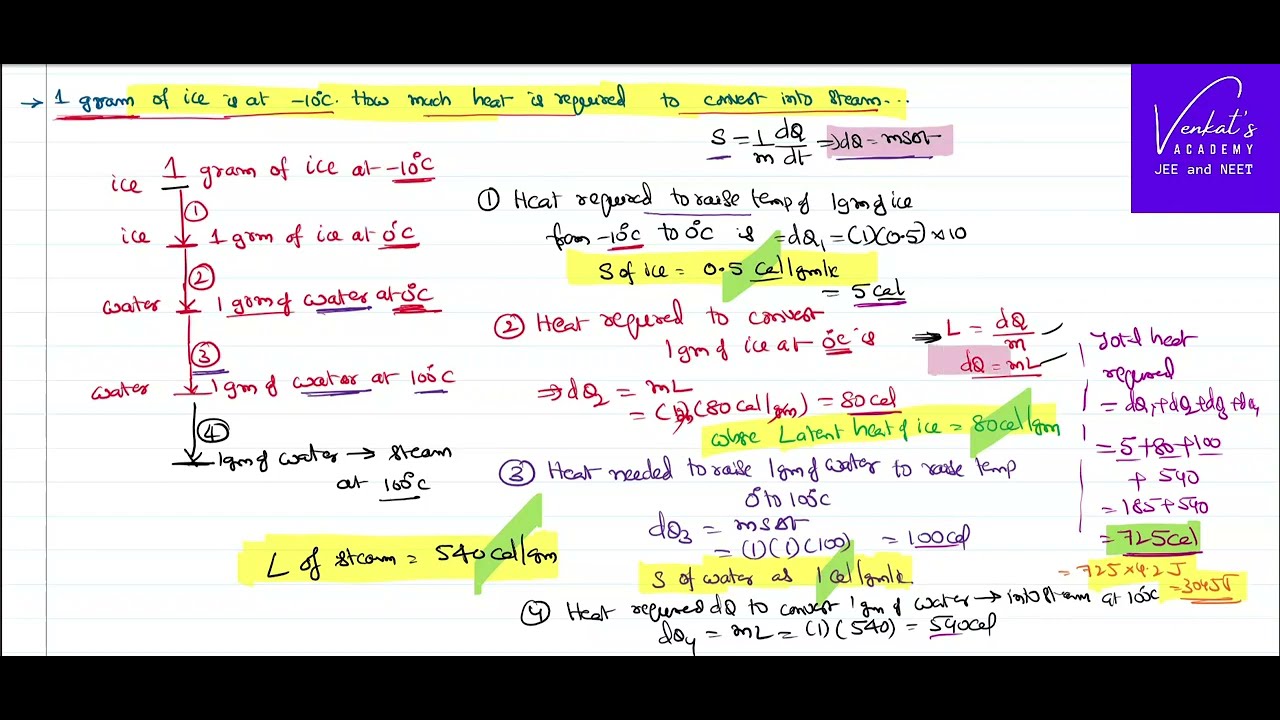 → 1 gram of ice is at -10°C. How much heat is required to convert into steam...
Venkat's
ACADEMY
JEE and NEET
S = 1/m dQ/dt ⇒ dQ = msΔt
ice 1 gram of ice at -10°C
①
ice 1 grm of ice at 0°C
②
water 1 grm of water at 0°C
③
water 1 gm of water at 100°C
④
1 gm of water → steam
at 100°C
L of steam = 540 cal/gm
① Heat required to raise temp of 1 gm of ice
from -10°C to 0°C is = dQ₁ = (1)(0.5)×10
S of ice = 0.5 cal/gm/k
= 5 cal
② Heat required to convert
1 gm of ice at 0°C is
⇒ L = dQ/m
dQ = mL
⇒ dQ₂ = mL
= (1)(80 cal/gm) = 80 cal
where Latent heat of ice = 80 cal/gm
③ Heat needed to raise 1 gm of water to raise temp
0° to 100°C
dQ₃ = msΔt
= (1)(1)(100) = 100 cal
S of water as 1 cal/gm/k
④ Heat required dQ to convert 1 gm of water → into steam at 100°C
dQ₄ = mL = (1)(540) = 540 cal
Total heat
required
= dQ₁+dQ₂+dQ₃+dQ₄
= 5+80+100
+ 540
= 185+540
= 725 cal
= 725×4.2 J
= 3045J